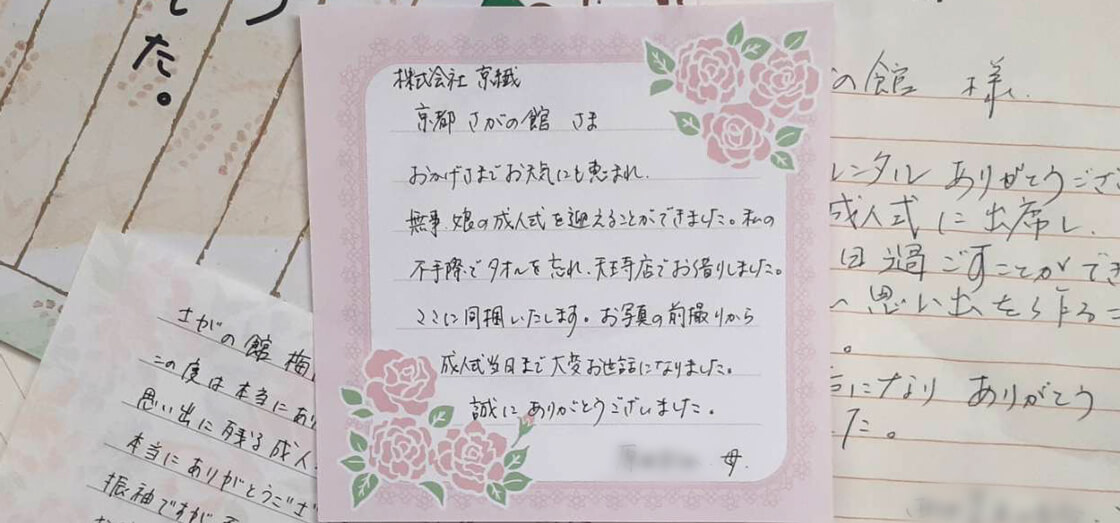 した。
株式会社 京繊
京都 さがの館 さま
おかげさまでお天気にも恵まれ、
無事、娘の成人式を迎えることができました。私の
不手際でタオルを忘れ、天王寺店でお借りしました。
ここに同梱いたします。お写真の前撮りから
成人式当日まで大変お世話になりました。
誠にありがとうございました。
母.
さがの館 梅
この度は本当にあり
思い出に残る成人
本当にありがとうござ
振袖ですが
の館 様
レンタル ありがとうござ
成人式に出席し、
日過ごすことができ
思い出を作るこ
。
になり ありがとう
た。